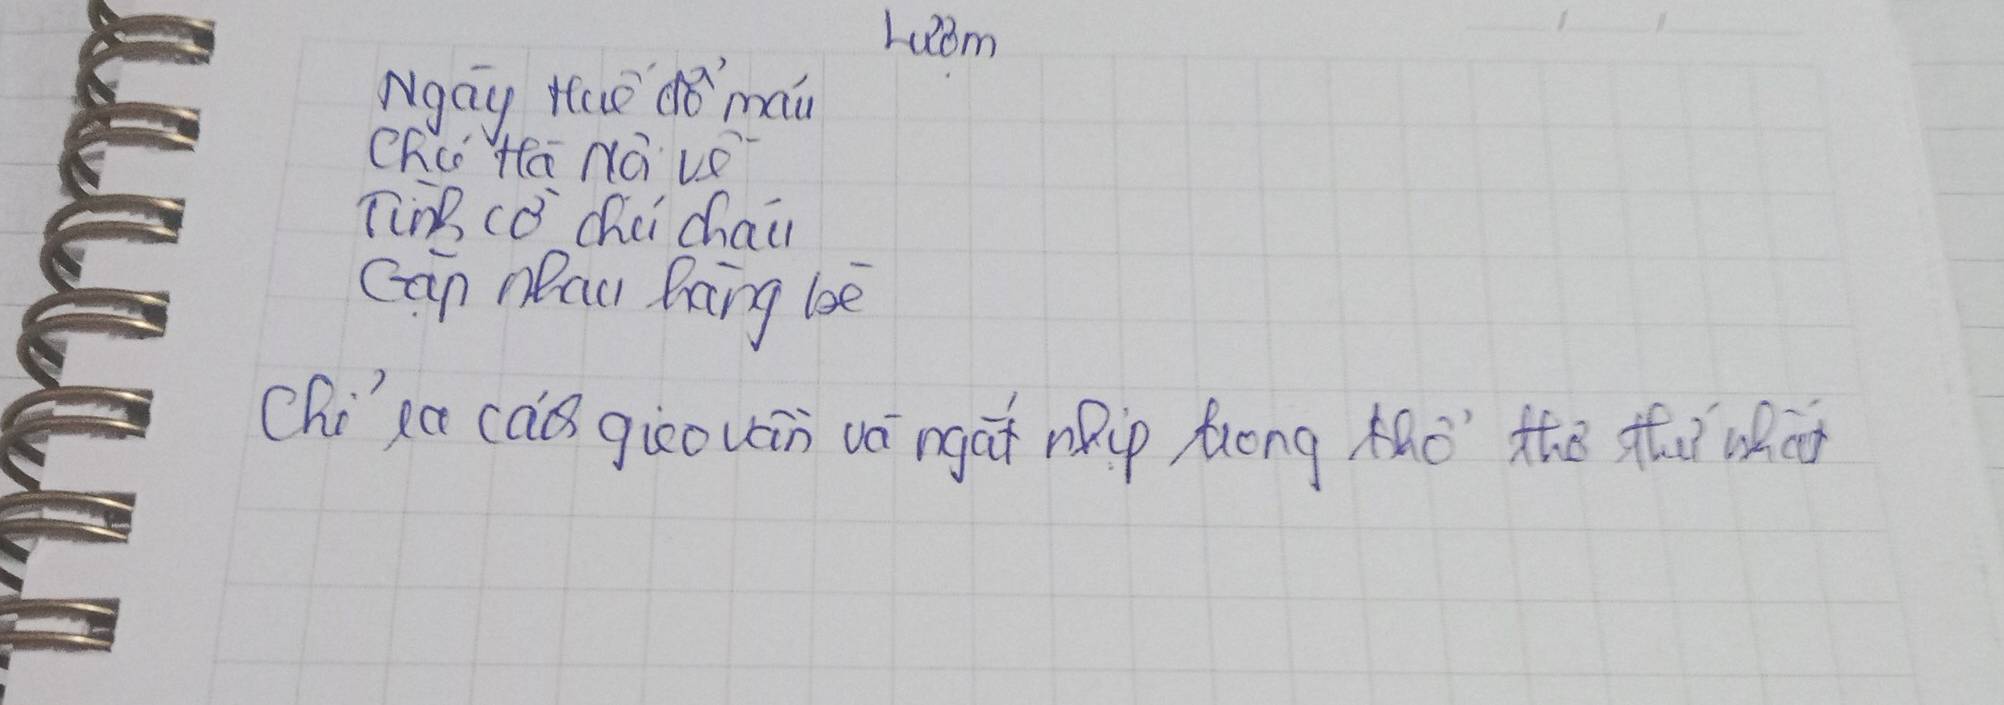 Lượm
Ngày Huế đổ máu
Chú Hà Nội về
Tình cờ chú cháu
Gặp nhau hàng bè
Chỉ ra cách gieo vần và ngắt nhịp trong khổ thơ thứ nhất